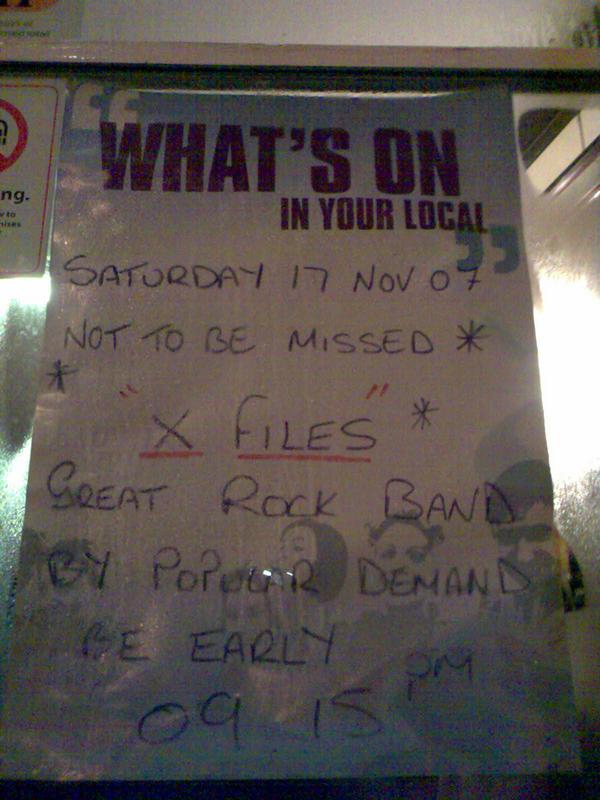 ng.
WHAT'S ON
IN YOUR LOCAL
SATURDAY 17 NOV 07
NOT TO BE MISSED *
*
"X FILES" *
GREAT ROCK BAND
BY POPULAR DEMAND
BE EARLY
09 15 PM